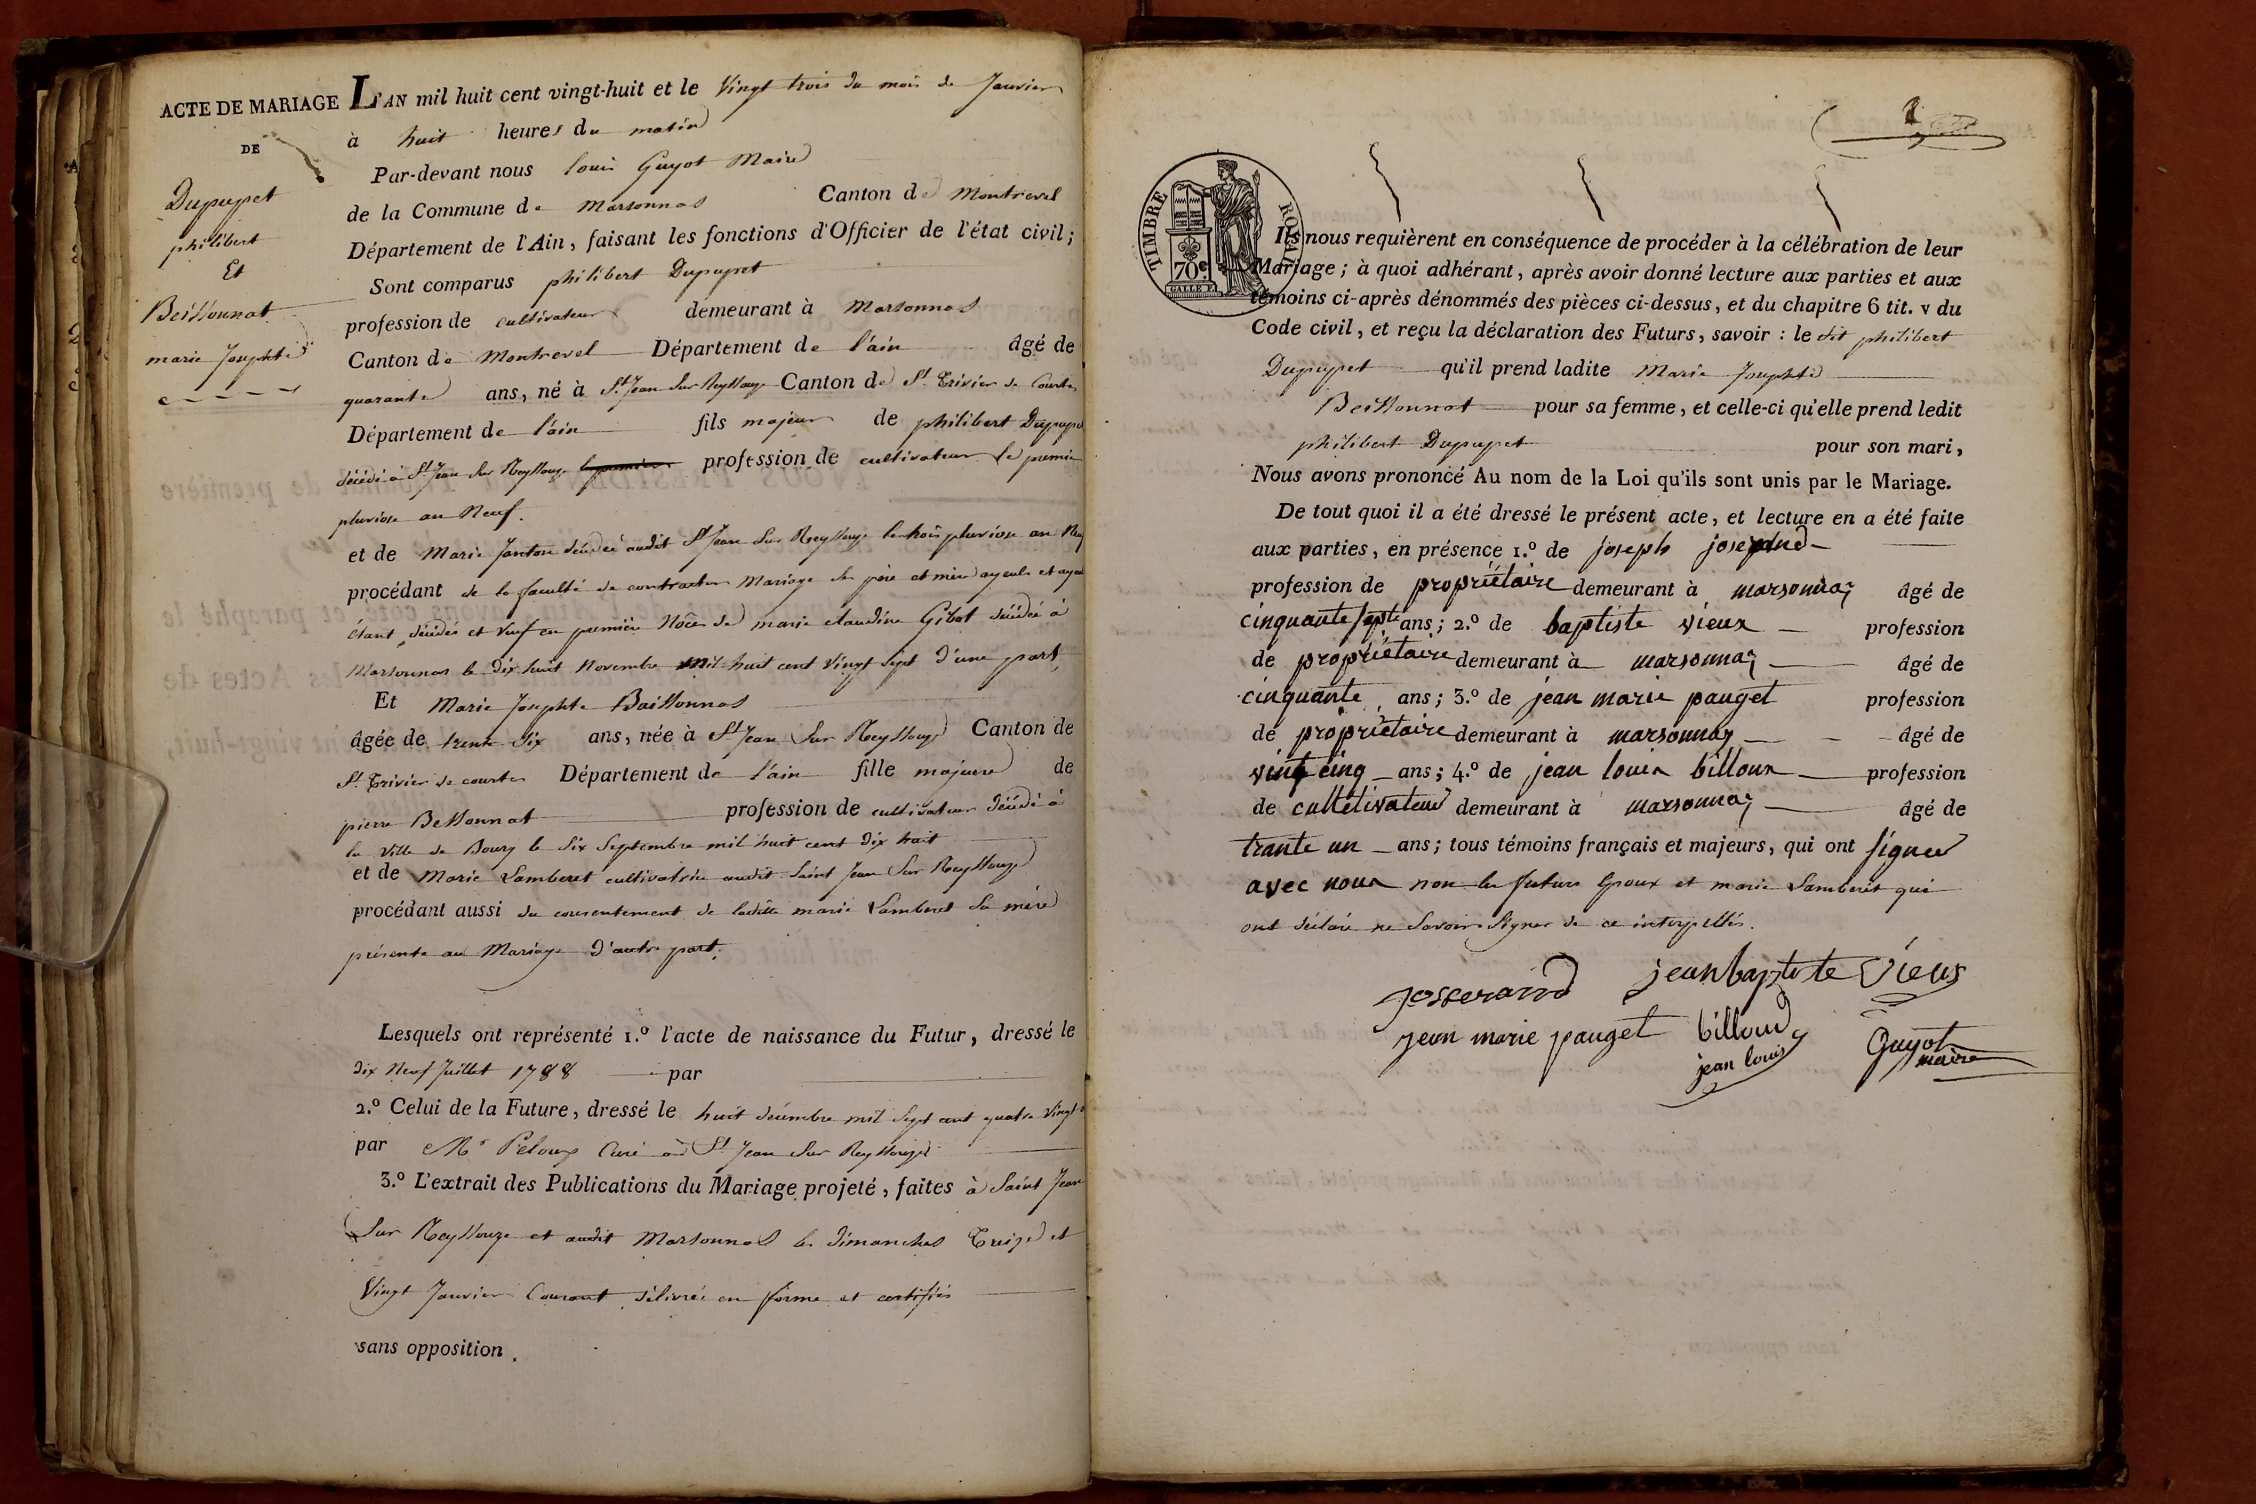 ACTE DE MARIAGE
DE
Dupupet
philibert
Et
Beissonnat
marie Josephte
L'AN mil huit cent vingt-huit et le Vingt trois du mois de Janvier
à huit heures du matin
Par-devant nous louis Guyot Maire
de la Commune de Marsonnas Canton de Montrevel
Département de l'Ain, faisant les fonctions d'Officier de l'état civil;
Sont comparus philibert Dupupet
profession de cultivateur demeurant à Marsonnas
Canton de Montrevel Département de l'ain âgé de
quarante ans, né à St. Jean Sur Reyssouze Canton de St. Trivier de Courtes
Département de l'ain fils majeur de philibert Dupupet
décédé à St Jean Sur Reyssouze profession de cultivateur le premier
pluviose an Neuf.
et de Marie Janton décédée audit St Jean Sur Reyssouze le trois pluviose an
procédant de la faculté de contracter Mariage ses père et mère ayeuls et
étant décédés et Veuf en premiere Nôce de marie claudine Gibot décédée à
Marsonnas le dix huit Novembre mil huit cent Vingt Sept d'une part,
Et Marie Josephte Baissonnas
âgée de trente six ans, née à St Jean Sur Reyssouze Canton de
St. Trivier de courtes Département de l'ain fille majeure de
pierre Bessonnat profession de cultivateur décédé à
la Ville de Bourg le Six Septembre mil huit cent dix huit
et de Marie Lamberet cultivatrice audit Saint Jean Sur Reyssouze
procédant aussi du consentement de ladite marie Lamberet Sa mère
présente au Mariage D'autre part.
Lesquels ont représenté 1.º l'acte de naissance du Futur, dressé le
dix Neuf Juillet 1788 par
2.º Celui de la Future, dressé le huit décembre mil Sept cent quatre Vingt
par Mr Peloux Curé à St Jean Sur Reyssouze
3.º L'extrait des Publications du Mariage projeté, faites à Saint Jean
Sur Reyssouze et audit Marsonnas les dimanches Treize et
Vingt Janvier Courant délivrés en forme et certifiés
sans opposition.
TIMBRE ROYAL
70c.
Ils nous requièrent en conséquence de procéder à la célébration de leur
Mariage; à quoi adhérant, après avoir donné lecture aux parties et aux
témoins ci-après dénommés des pièces ci-dessus, et du chapitre 6 tit. v du
Code civil, et reçu la déclaration des Futurs, savoir : le dit philibert
Dupupet qu'il prend ladite Marie Josephte
Beissonnat pour sa femme, et celle-ci qu'elle prend ledit
philibert Dupupet pour son mari,
Nous avons prononcé Au nom de la Loi qu'ils sont unis par le Mariage.
De tout quoi il a été dressé le présent acte, et lecture en a été faite
aux parties, en présence 1.º de joseph
profession de propriétaire demeurant à marsonnas âgé de
cinquante sept ans; 2.º de baptiste vieux profession
de propriétaire demeurant à marsonnas âgé de
cinquante ans; 3.º de jean marie pauget profession
de propriétaire demeurant à marsonnas âgé de
vint cinq ans; 4.º de jean louis billoux profession
de cultitivateur demeurant à marsonnas âgé de
trante un ans; tous témoins français et majeurs, qui ont signer
avec nous non les futurs Epoux et marie Lamberet qui
ont déclaré ne Savoir Signer de ce interpellés.
josserand jeanbaptiste vieux
jean marie pauget billoud
jean louis
Guyot
maire